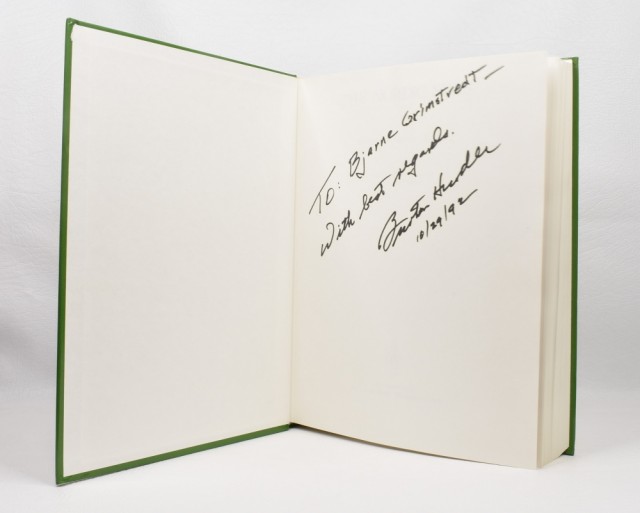 To: Bjarne Grimstvedt —
With best regards.
Buster Hunder
10/29/92